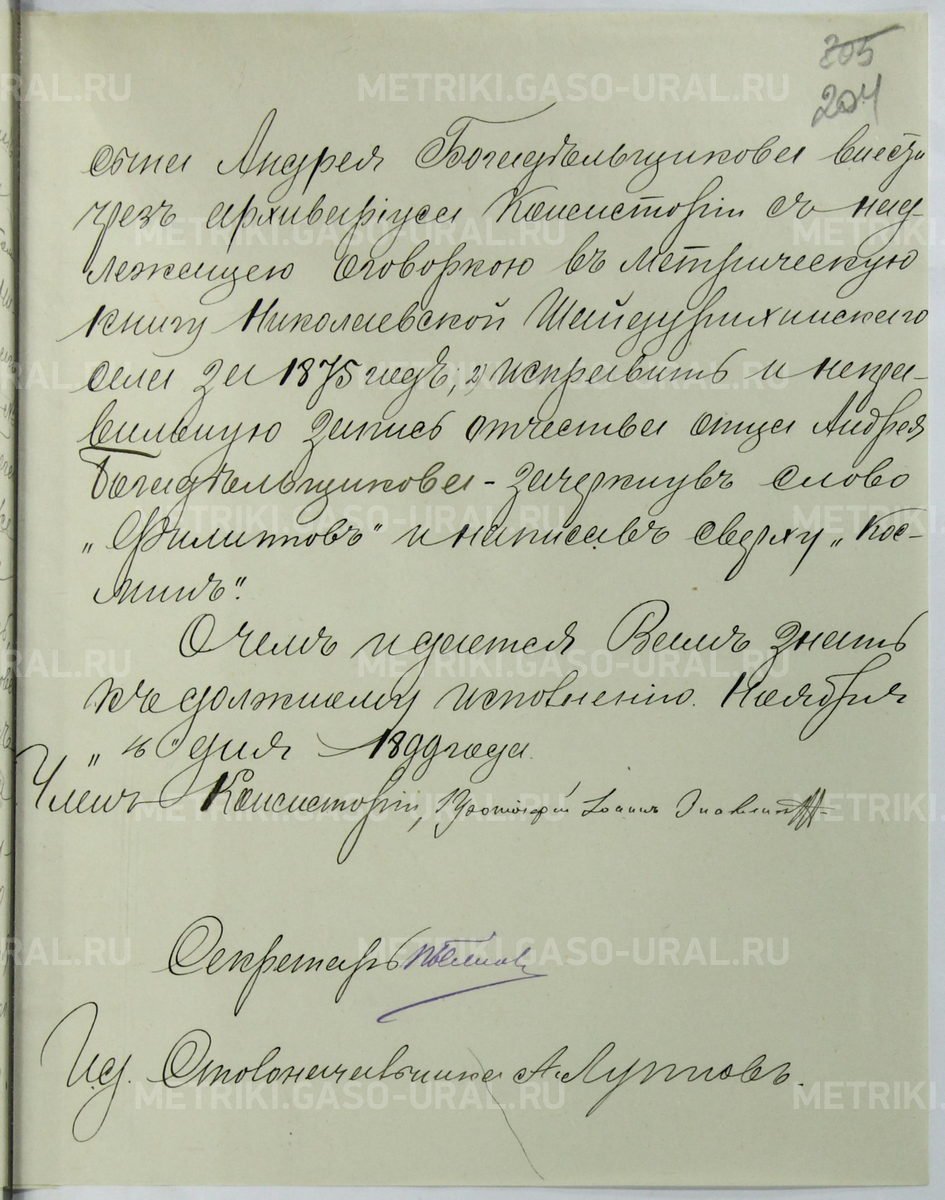 305
204
сына Андрея Богадѣльщикова внести
чрезъ архиваріуса Консисторіи съ над-
лежащею оговоркою въ метрическую
книгу Николаевской Шайдурихинскаго
села за 1875 годъ; 2) исправить и непра-
вильную запись отчества отца Андрея
Богадѣльщикова - зачеркнувъ слово
„Филиповъ“ и написавъ сверху „Кос-
минъ“.
О чемъ и дается Вамъ знать
къ должному исполненію. Ноября
дня 1899 года.
Членъ Консисторіи, Протоіерей Іоаннъ
Секретарь
И.д. Столоначальника А. Лупповъ.
METRIKI.GASO-URAL.RU